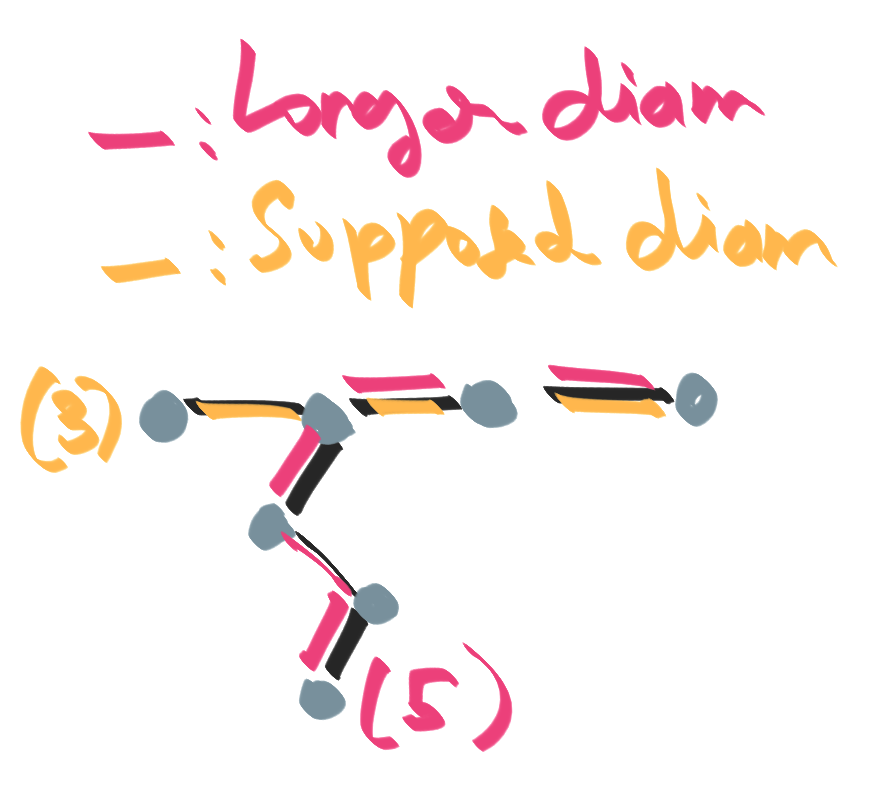 — : Longer diam
— : Supposed diam
(3)
(5)